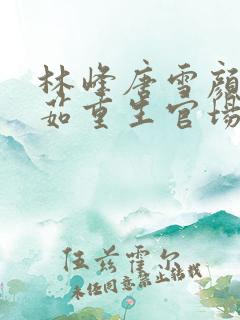 林峰唐雪颜
茹重生官场
伍兹霍尔
未经同意禁止转载